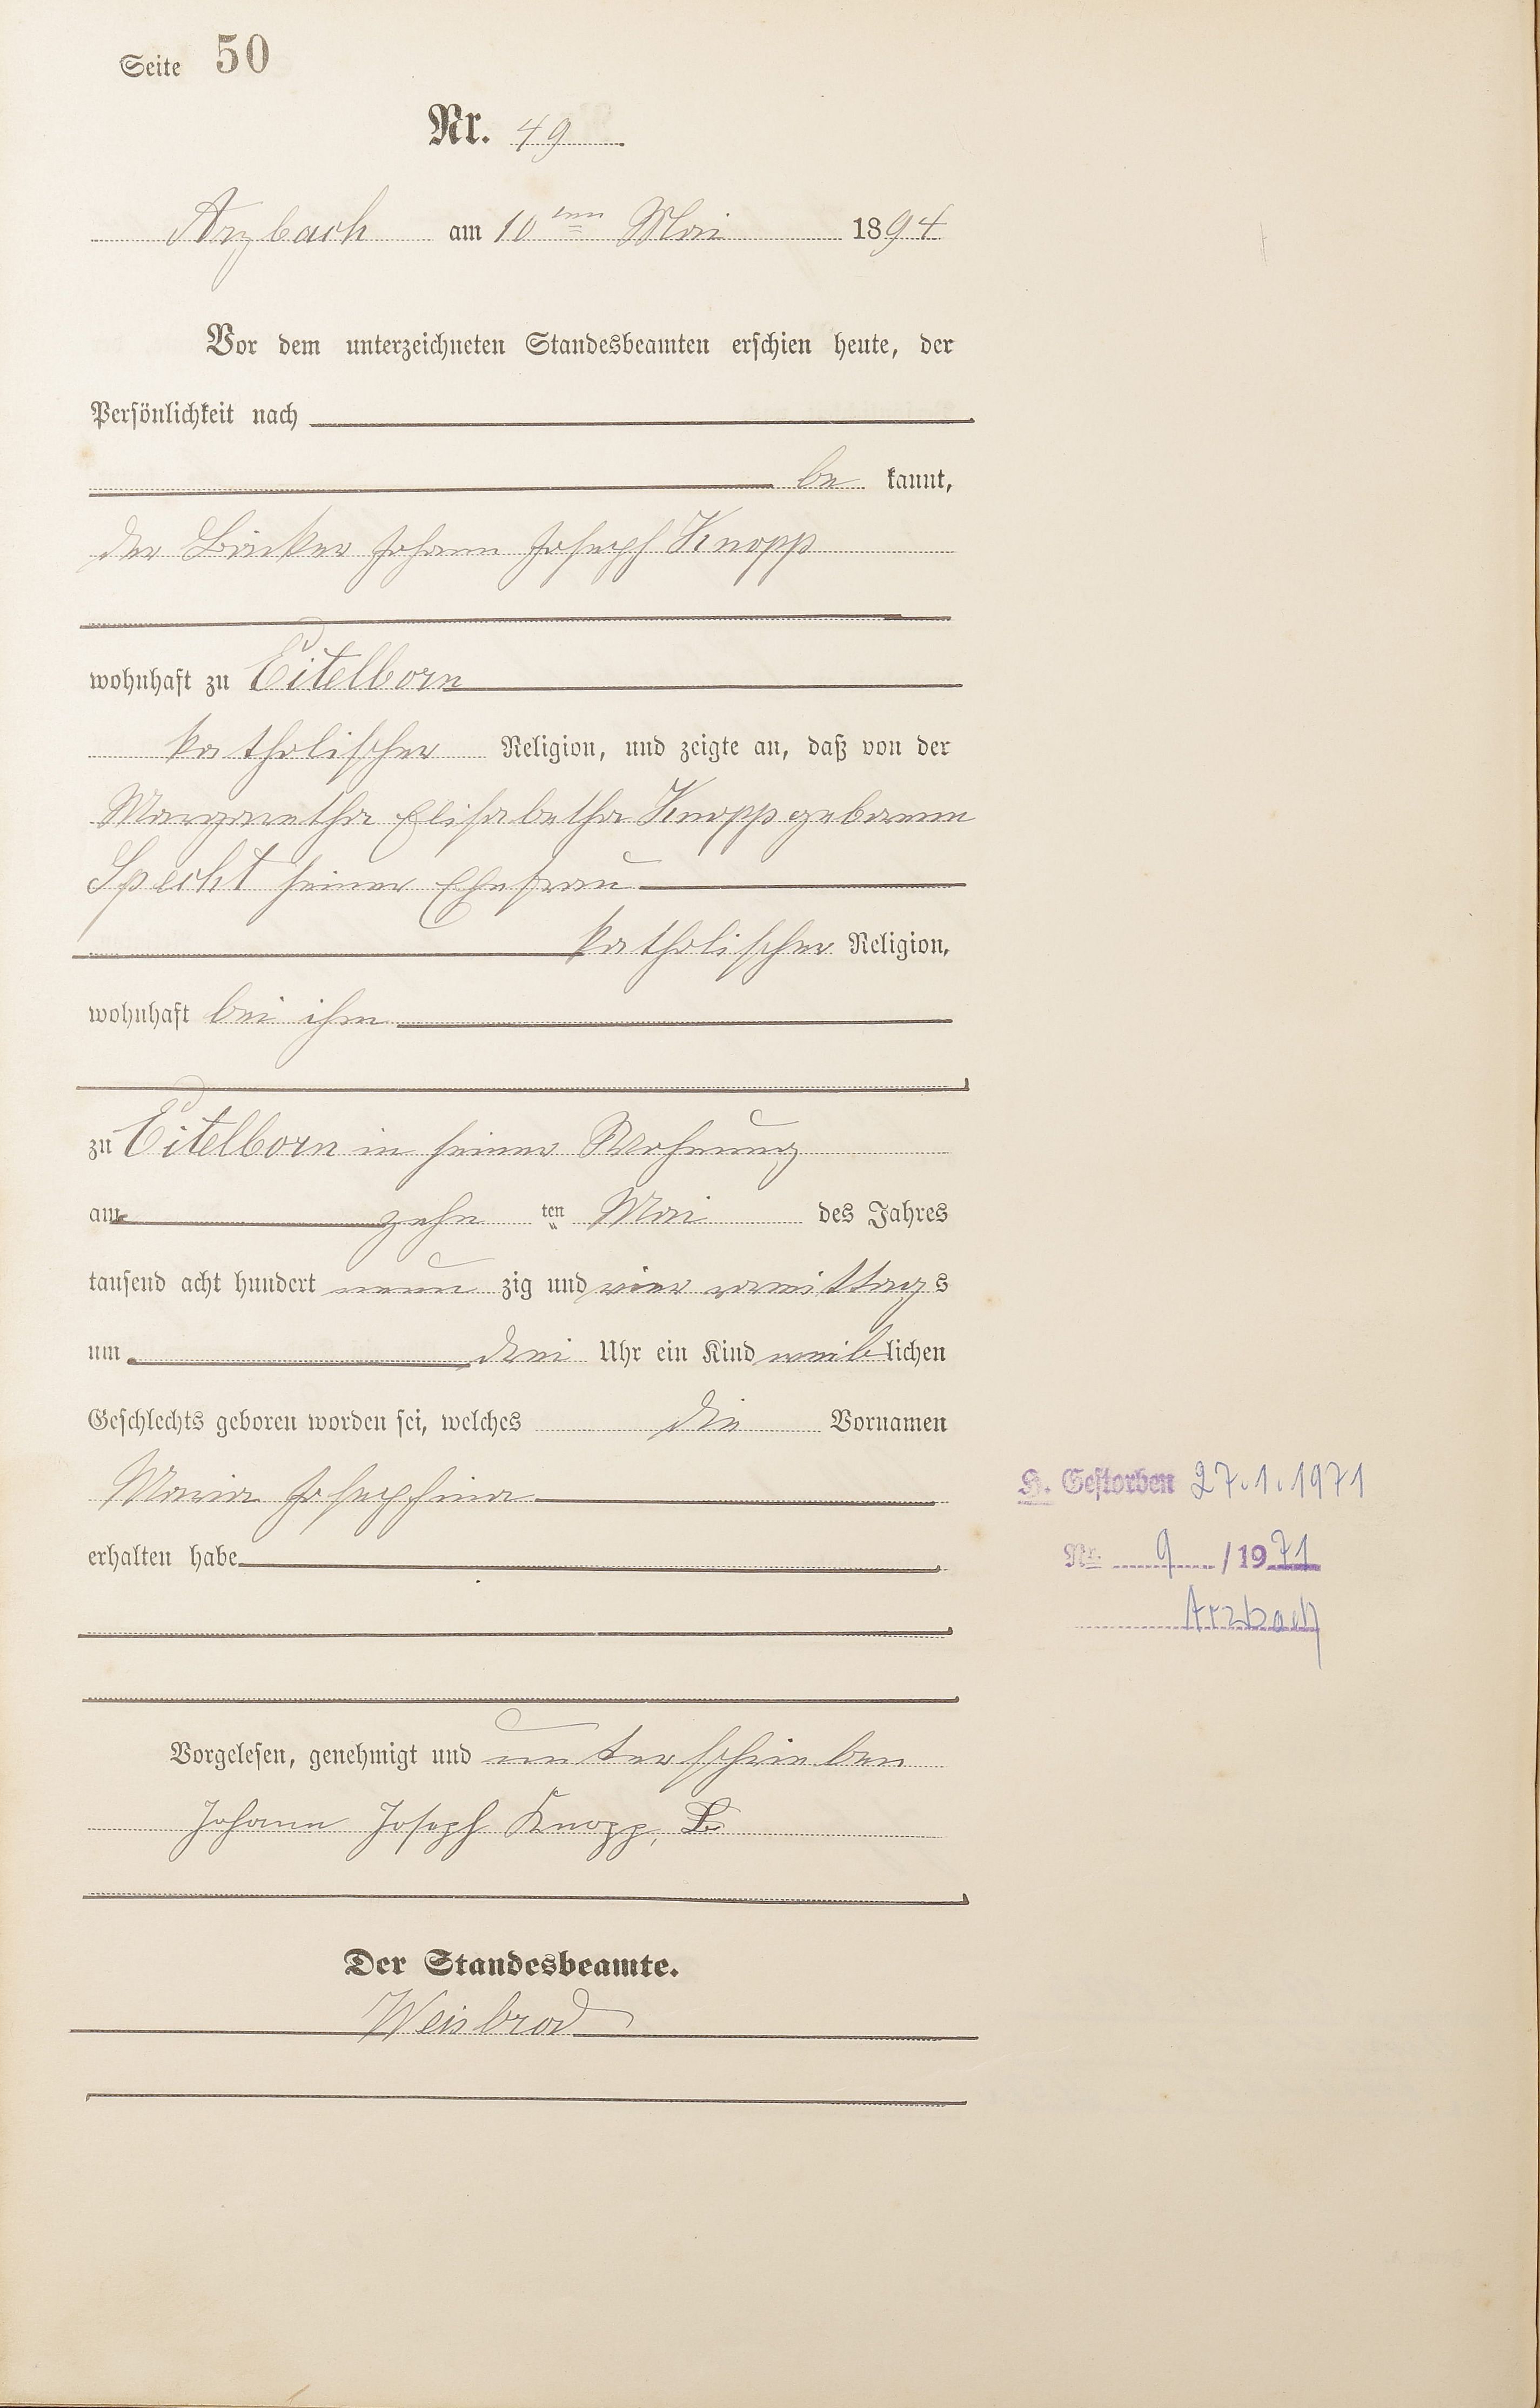 Seite 50
Nr. 49
Arzbach am 10ten Mai 1894
Vor dem unterzeichneten Standesbeamten erschien heute, der
Persönlichkeit nach
be kannt,
der Bäcker Johann Joseph Knopp
wohnhaft zu Eitelborn
katholischer Religion, und zeigte an, daß von der
Margaretha Elisabetha Knopp geborenen
Specht seiner Ehefrau
katholischer Religion,
wohnhaft bei ihm
zu Eitelborn in seiner Wohnung
am zehn ten Mai des Jahres
tausend acht hundert neun zig und vier vormittags
um drei Uhr ein Kind weiblichen
Geschlechts geboren worden sei, welches die Vornamen
Maria Josephina
H. Gestorben 27.1.1971
erhalten habe
Nr. 9 / 1971
Arzbach
Vorgelesen, genehmigt und unterschrieben
Johann Joseph Knopp,
Der Standesbeamte.
Weisbrod